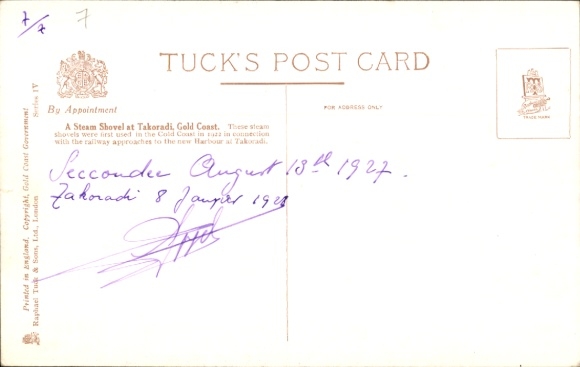 7/7 7
TUCK'S POST CARD
By Appointment
FOR ADDRESS ONLY
TRADE MARK
A Steam Shovel at Takoradi, Gold Coast. These steam
shovels were first used in the Gold Coast in 1922 in connection
with the railway approaches to the new Harbour at Takoradi.
Seccondee August 13th 1927.
Takoradi 8 192
Printed in England, Copyright, Gold Coast Government Series IV
Raphael Tuck & Sons, Ltd., London